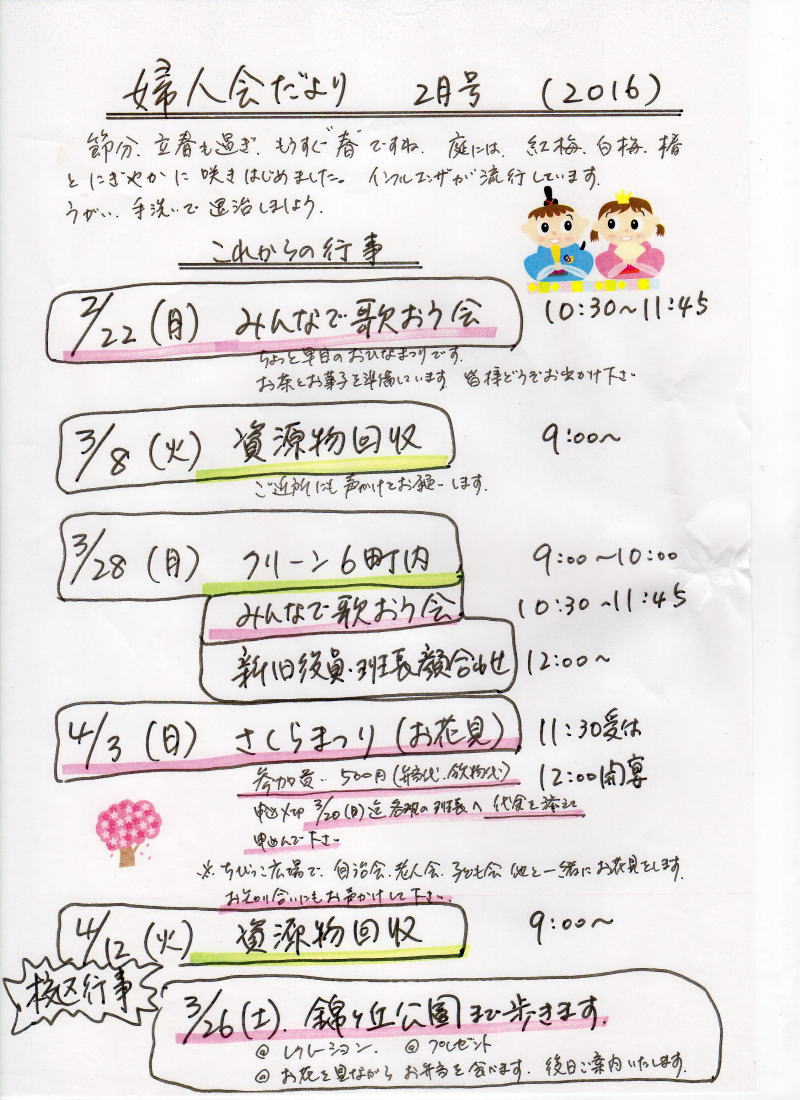 婦人会だより 2月号 (2016)
節分、立春も過ぎ、もうすぐ"春"ですね。庭には、紅梅、白梅、椿
とにぎやかに咲きはじめました。インフルエンザが流行しています。
うがい、手洗いで退治しましょう。
これからの行事
2/22(月) みんなで歌おう会 10:30〜11:45
ちょっと早目のおひなまつりです。
お茶とお菓子を準備しています。皆様どうぞお出かけ下さい
3/8(火) 資源物回収 9:00〜
ご近所にも声かけてお願いします。
3/28(月) クリーン6町内 9:00〜10:00
みんなで歌おう会 10:30〜11:45
新旧役員・班長顔合わせ 12:00〜
4/3(日) さくらまつり(お花見) 11:30受付
参加費 500円(弁当代、飲物代) 12:00開宴
申込〆切 3/20(日)迄 各班の班長へ 代金を添えて
申込んで下さい
※ ちびっこ広場で、自治会、老人会、子ども会 他と一緒にお花見をします。
お知り合いにもお声がけして下さい。
4/12(火) 資源物回収 9:00〜
校区行事
3/26(土). 錦ヶ丘公園まで歩きます。
@ レクレーション. @ プレゼント
@ お花を見ながら お弁当を食べます. 後日ご案内いたします.